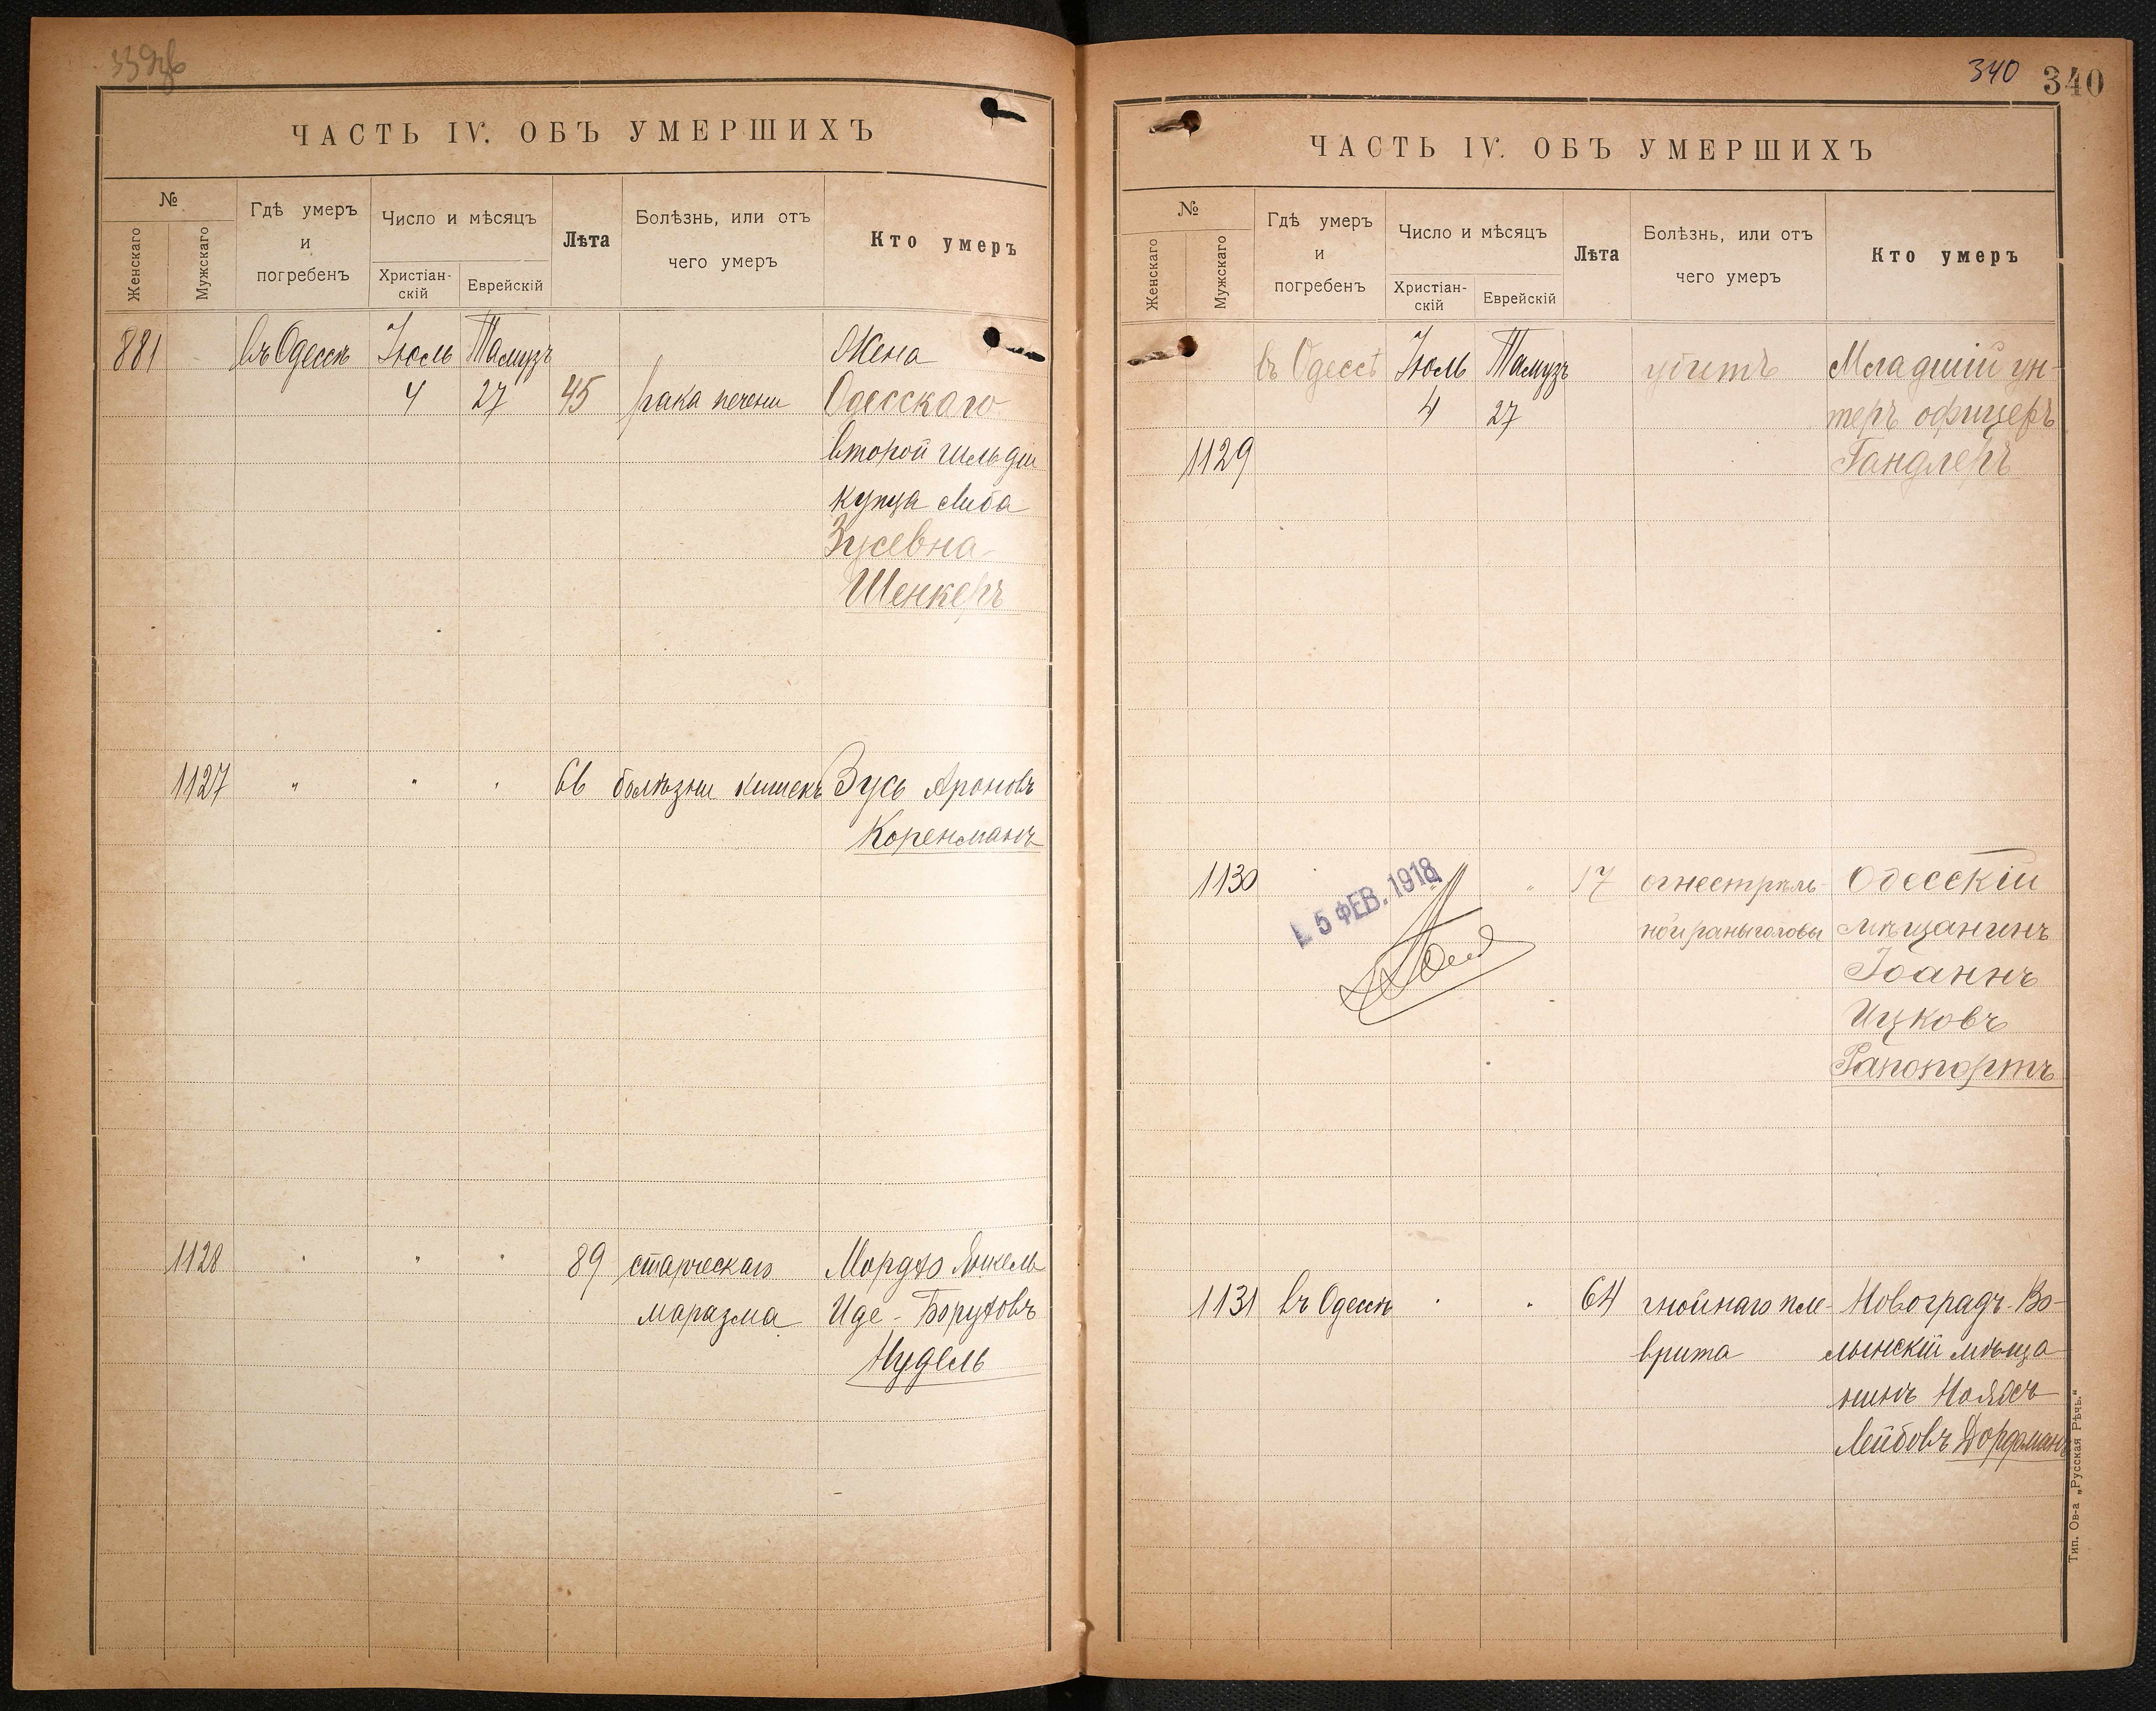 ЧАСТЬ IV. ОБЪ УМЕРШИХЪ
№
Женскаго
Мужскаго
Гдѣ умеръ
и
погребенъ
Число и мѣсяцъ
Христіан-
скій
Еврейскій
Лѣта
Болѣзнь, или отъ
чего умеръ
Кто умеръ
881 въ Одессѣ Іюль Тамузъ Жена
4 27 45 рака печени Одесскаго
второй гильдіи
купца Либа
Зусевна
Шенкеръ
1127 " " " 66 болѣзни кишекъ Зусь Ароновъ
Коренманъ
1128 " " " 89 старческаго Мордхо Янкель
маразма Иде-Боруховъ
Нудель
340 340
ЧАСТЬ IV. ОБЪ УМЕРШИХЪ
№
Женскаго
Мужскаго
Гдѣ умеръ
и
погребенъ
Число и мѣсяцъ
Христіан-
скій
Еврейскій
Лѣта
Болѣзнь, или отъ
чего умеръ
Кто умеръ
въ Одессѣ Іюль Тамузъ убитъ Младшій ун-
4 27 теръ офицеръ
1129 Гандлеръ
1130 " " 17 огнестрѣль- Одесскій
ной раны головы мѣщанинъ
Іоаннъ
Ицковъ
Рапопортъ
5 ФЕВ. 1918
1131 въ Одессѣ " " 64 гнойнаго пле- Новоградъ-Во-
врита лынскій мѣща-
нинъ
Лейбовъ Дорфманъ
Тип. Ов-а „Русская Рѣчь."